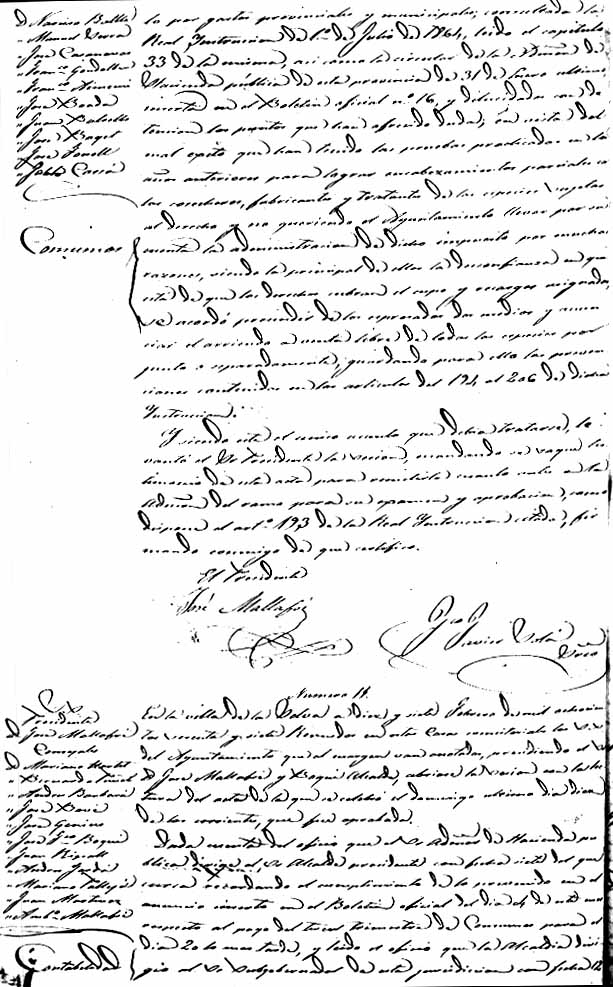 D. Narciso Ballté
" Manuel
" José Casanovas
" José Boada
" Juan
" José Baget
" José Fonoll
" Pablo
lo por gastos provinciales y municipales; consultada la
Real Instruccion de 1º de Julio de 1864, leido el capítulo
33 de la misma, asi como la circular de la Admon de
Hacienda pública de esta provincia de 31 de Enero último,
inserta en el Boletin oficial nº 16, y dilucidados con de
tencion los puntos que han ofrecido duda; en vista del
mal exito que han tenido las pruebas practicadas en los
años anteriores para lograr encabezamientos parciales con
los cosecheros, fabricantes y tratantes de las especies sujetas
al derecho y no queriendo el Ayuntamiento llevar por su
Consumos
cuenta la administracion de dicho impuesto por muchas
razones, siendo la principal de ellas la desconfianza en que
está de que los derechos cubran el cupo y recargos asignados,
se acordó prescindir de los espresados dos medios y anun
ciar el arriendo a venta libre de todas las especies por
junto o separadamente, guardando para ello las preven
ciones contenidas en los articulos del 194 al 206 de dicha
Instruccion.
Y siendo este el unico asunto que debia tratarse, le
vantó el Sr Presidente la sesion, mandando se saque tes
timonio de esta acta para remitirlo cuanto antes a la
Admon del ramo para su examen y aprobacion, como
dispone el artº 193 de la Real Instruccion citada, fir
mando conmigo de que certifico.
El Presidente
José Mallafré
Javier
Srio
Numero 11.
Sres
Presidente
D. José Mallafré
Concejales
D. Mariano
" Bernardo
" Isidro Barbará
" José
" Juan
" José Fco Boqué
" Juan Ripoll
" Mariano
" Juan Martorell
" Antº Mallafré
En la villa de la Selva a diez y siete Febrero de mil ochocien
tos sesenta y siete: Reunidos en esta Casa consistorial los S.S.
del Ayuntamiento que al margen van anotados, presididos el Sr
D. José Mallafré y Boqué Alcalde, abriose la sesion con la lec
tura del acta de la que se celebró el domingo ultimo dia diez
de los corriente, que fue aprobada.
Dada cuenta del oficio que el Sr Admor de Hacienda pu
blica dirige al Sr Alcalde presidente con fecha siete del que
cursa recordando el cumplimiento de lo prevenido en el
anuncio inserto en el Boletin oficial del dia 4 de este mes
respecto al pago del tercer trimestre de Consumos para el
Contabilidad
dia 20 lo mas tarde, y leido el oficio que la Alcaldia diri
gió al Sr Subgobernador de esta jurisdiccion con fecha 12